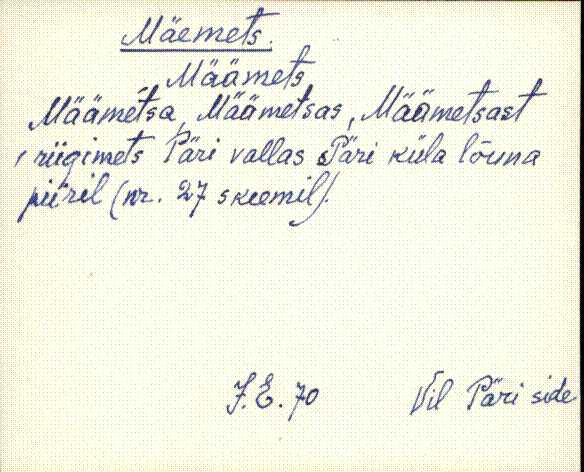 Mäemets.
Määmets
Määmetsa, Määmetsas, Määmetsast
, riigimets Päri vallas Päri küla lõuna
piiril (nr. 27 skeemil).
J.E. 70 Vil Päri side